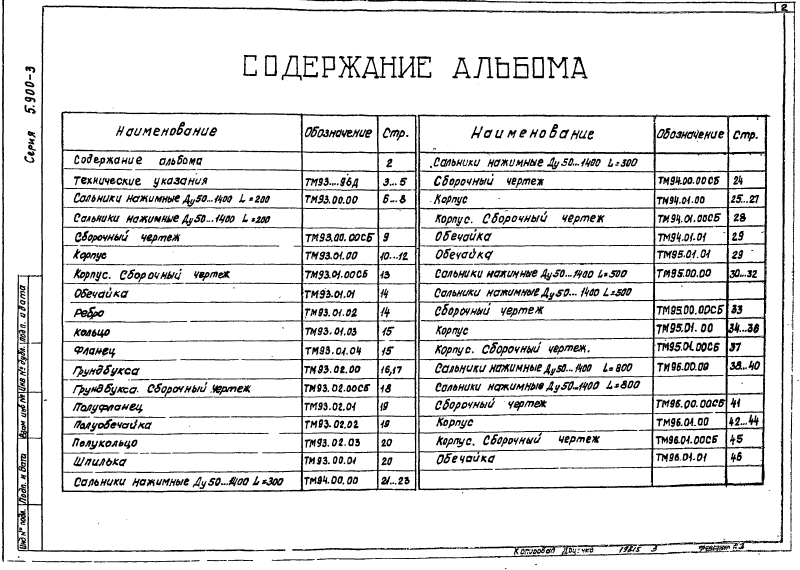 2
Серия 5.900-3
СОДЕРЖАНИЕ АЛЬБОМА
Наименование Обозначение Стр.
Содержание альбома 2
Технические указания ТМ93...96Д 3...5
Сальники нажимные Ду50...1400 L=200 ТМ93.00.00 6...8
Сальники нажимные Ду50...1400 L=200
Сборочный чертеж ТМ93.00.00СБ 9
Корпус ТМ93.01.00 10...12
Корпус. Сборочный чертеж ТМ93.01.00СБ 13
Обечайка ТМ93.01.01 14
Ребро ТМ93.01.02 14
Кольцо ТМ93.01.03 15
Фланец ТМ93.01.04 15
Грундбукса ТМ93.02.00 16,17
Грундбукса. Сборочный чертеж ТМ93.02.00СБ 18
Полуфланец ТМ93.02.01 19
Полуобечайка ТМ93.02.02 19
Полукольцо ТМ93.02.03 20
Шпилька ТМ93.00.01 20
Сальники нажимные Ду50...1400 L=300 ТМ94.00.00 21...23
Наименование Обозначение Стр.
Сальники нажимные Ду50...1400 L=300
Сборочный чертеж ТМ94.00.00СБ 24
Корпус ТМ94.01.00 25...27
Корпус. Сборочный чертеж ТМ94.01.00СБ 28
Обечайка ТМ94.01.01 29
Обечайка ТМ95.01.01 29
Сальники нажимные Ду50...1400 L=500 ТМ95.00.00 30...32
Сальники нажимные Ду50...1400 L=500
Сборочный чертеж ТМ95.00.00СБ 33
Корпус ТМ95.01.00 34...36
Корпус. Сборочный чертеж. ТМ95.01.00СБ 37
Сальники нажимные Ду50...1400 L=800 ТМ96.00.00 38...40
Сальники нажимные Ду50...1400 L=800
Сборочный чертеж ТМ96.00.00СБ 41
Корпус ТМ96.01.00 42...44
Корпус. Сборочный чертеж ТМ96.01.00СБ 45
Обечайка ТМ96.01.01 46
Инв № подл. Подп. и дата Взам инв № Инв № дубл. Подп. и дата
Копировал 19215 3 Формат